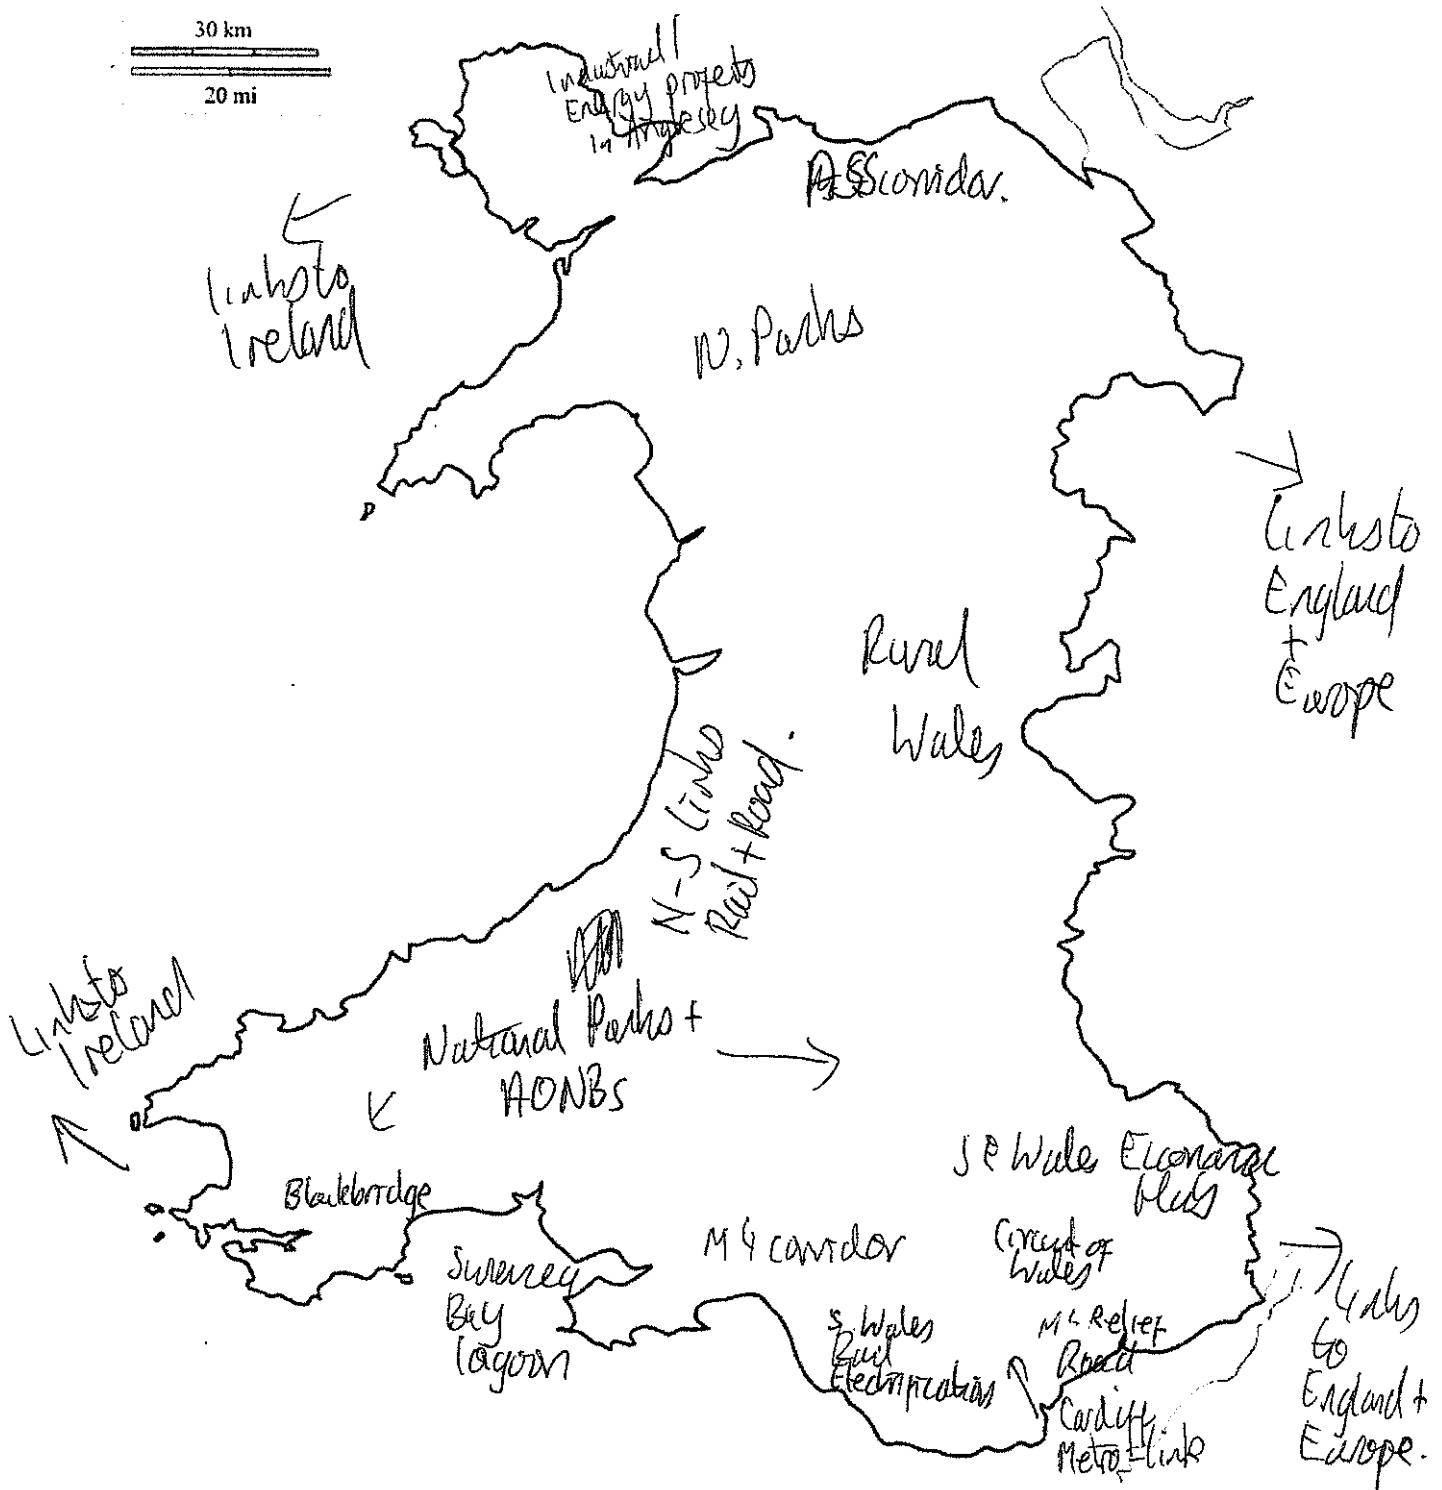 30 km
20 mi
Industrial /
Energy projects
in Anglesey
A55 corridor.
links to
Ireland
N. Parks
links to
England
+
Europe
Rural
Wales
N-S links
Rail + Road.
links to
Ireland
National Parks +
AONBs
Blackbridge
Swansea
Bay
lagoon
M4 corridor
SE Wales Economic
Hubs
Circuit of
Wales
S. Wales
Rail
Electrification
M4 Relief
Road
Cardiff
Metro-link
links
to
England +
Europe.